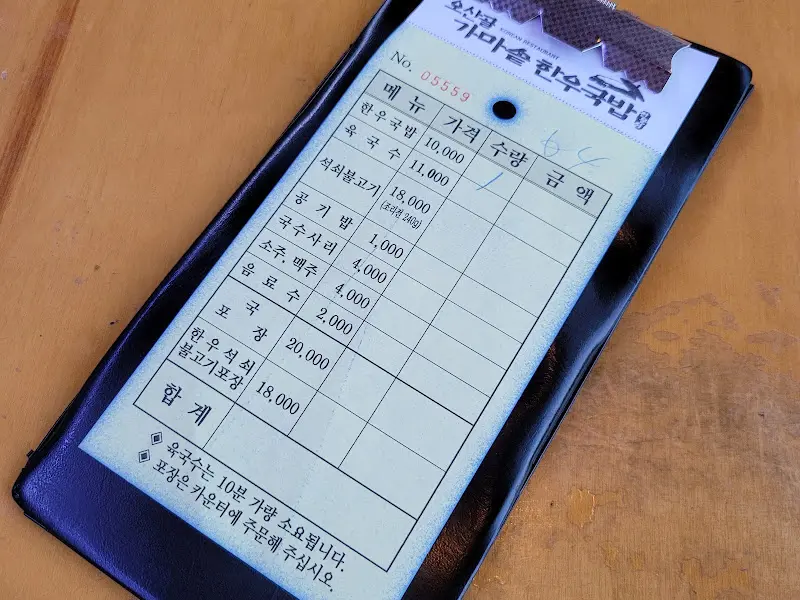 오산골
KOREAN RESTAURANT
가마솥 한우국밥
No. 05559
64
메뉴 가격 수량 금액
한우국밥 10,000 /
육국수 11,000
석쇠불고기 18,000
(조리전 240g)
공기밥 1,000
국수사리 4,000
소주, 맥주 4,000
음료수 2,000
국
포장 20,000
한우석쇠
불고기포장 18,000
합계
▣ 육국수는 10분 가량 소요됩니다.
▣ 포장은 카운터에 주문해 주십시오.